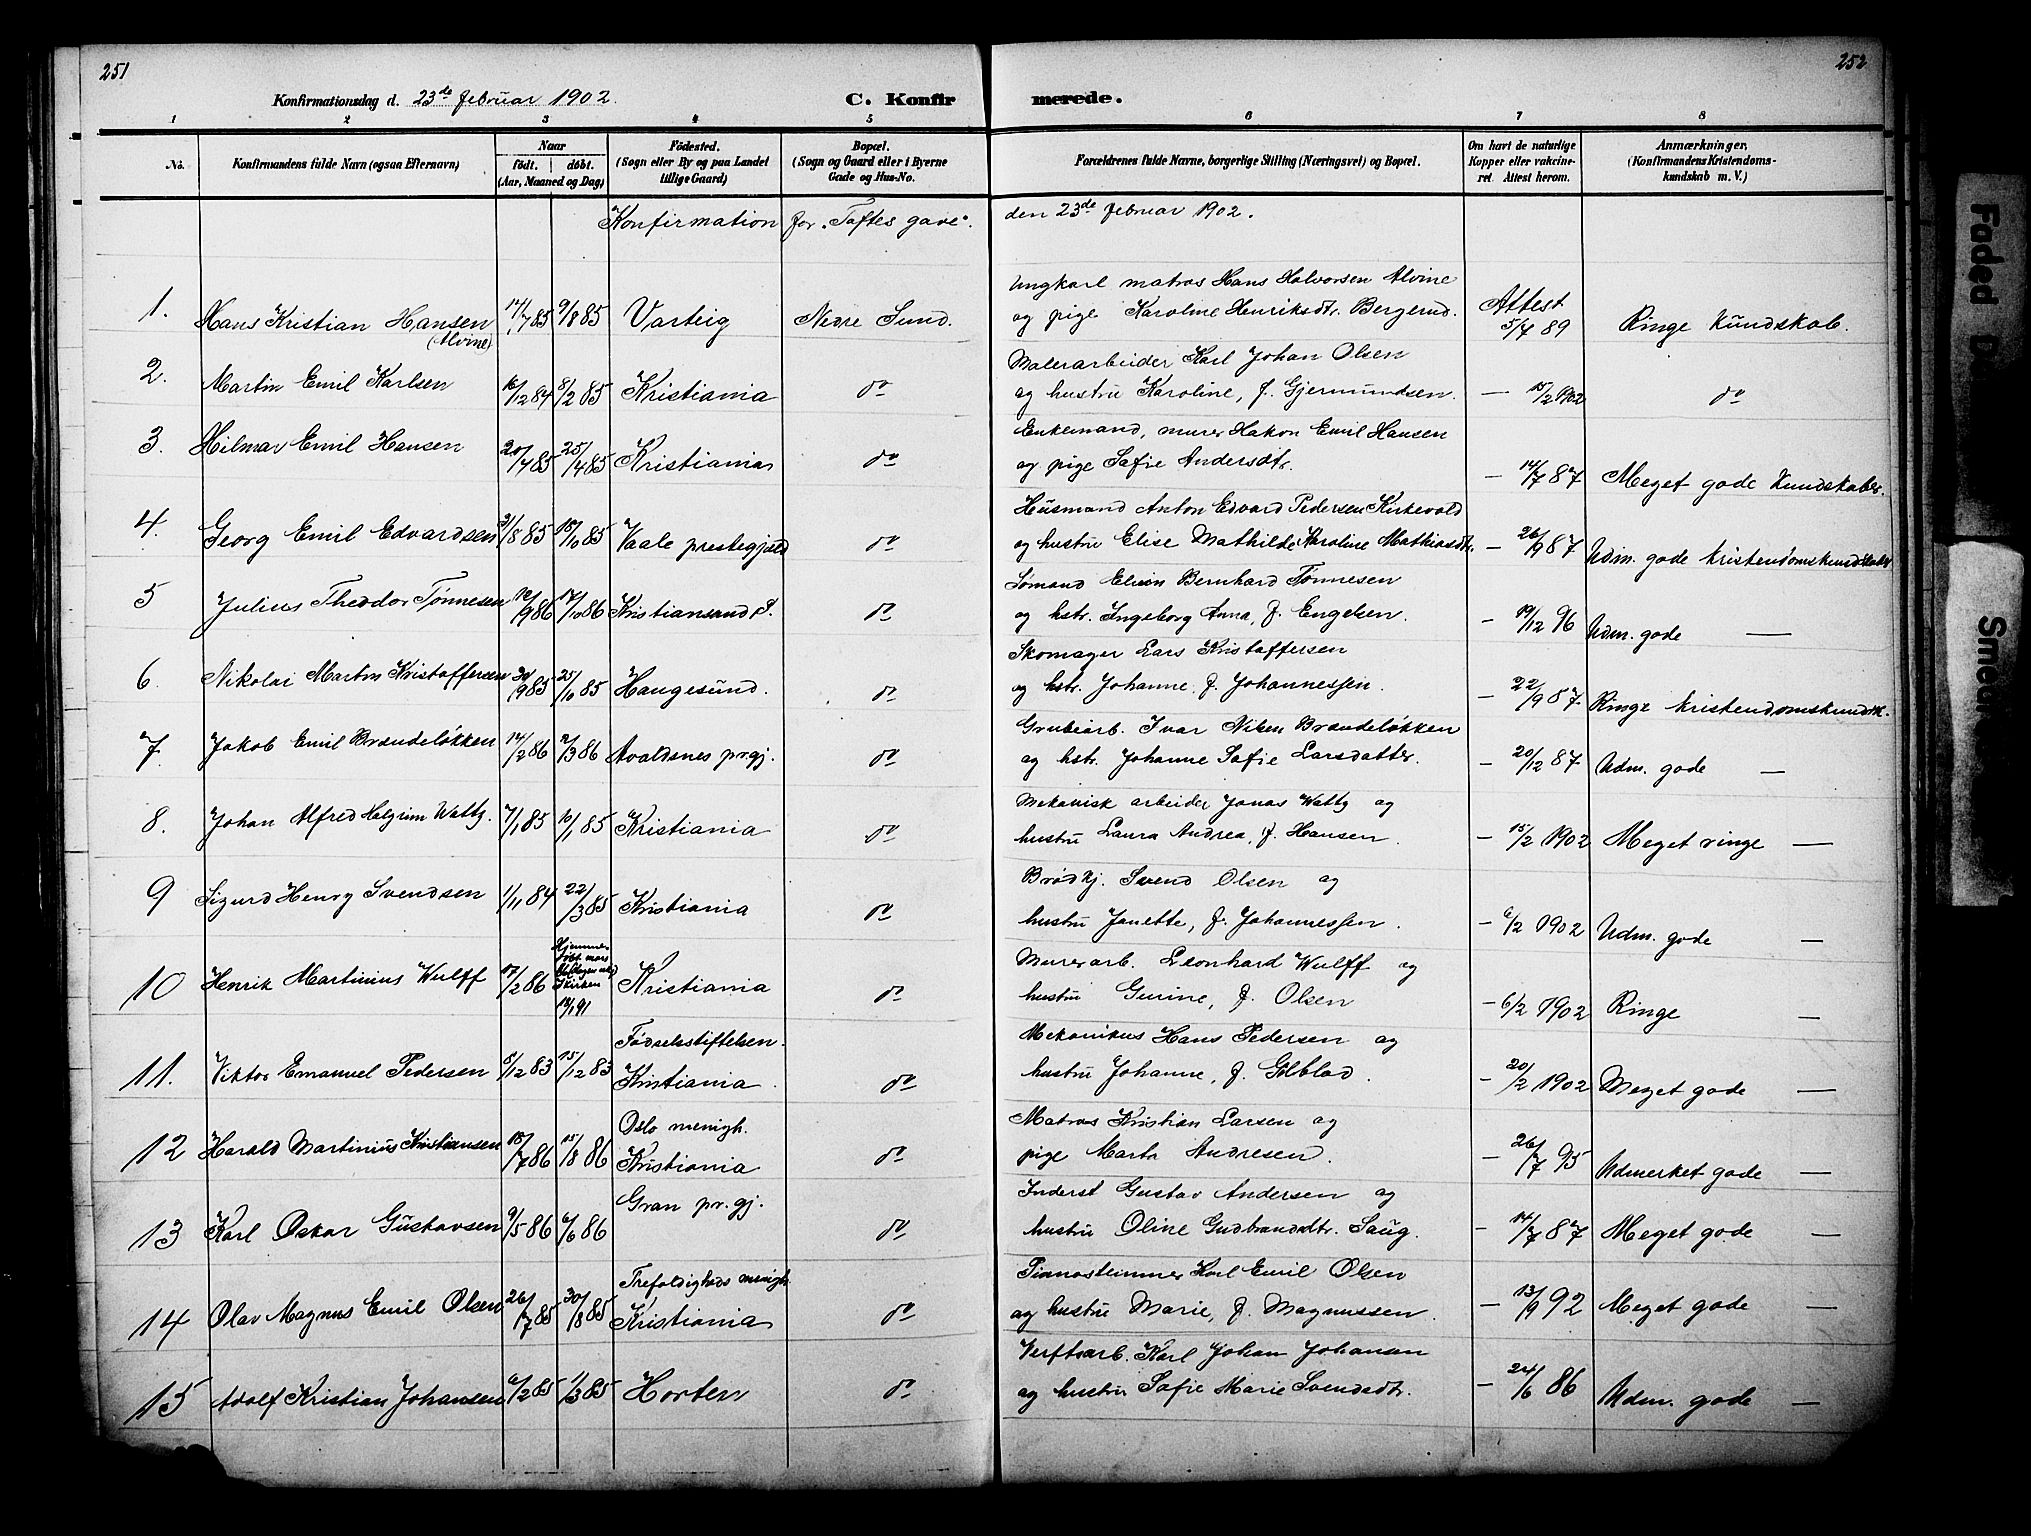 251
252
Konfirmationsdag d. 23de februar 1902.
C. Konfirmerede.
1 2 3 4 5 6 7 8
No.
Konfirmandens fulde Navn (ogsaa Efternavn)
Naar
født. døbt.
(Aar, Maaned og Dag)
Fødested.
(Sogn eller By og paa Landet
tillige Gaard)
Bopæl.
(Sogn og Gaard eller i Byerne
Gade og Hus-No.
Forældrenes fulde Navne, borgerlige Stilling (Næringsvei) og Bopæl.
Om havt de naturlige
Kopper eller vakcine-
ret. Attest herom.
Anmærkninger,
(Konfirmandens Kristendoms-
kundskab m. V.)
Konfirmation for "Toftes gave". den 23de februar 1902.
Ungkarl matros Hans Halvorsen Alvine
1. Hans Kristian Hansen 17/7 85 9/8 85 Varteig Nedre Sund. og pige Karoline Henriksdtr. Bergerud. Attest 5/7 89 Ringe Kundskab.
(Alvine)
Malerarbeider Karl Johan Olsen
2. Martin Emil Karlsen 16/12 84 8/2 85 Kristiania do og hustru Karoline, f. Gjermundsen. — 15/2 1902 do
Enkemand, murer Hakon Emil Hansen
3. Hilmar Emil Hansen 20/4 85 25/4 85 Kristiania do og pige Sofie Andersdtr. — 14/7 87 Meget gode Kundskaber.
Husmand Anton Edvard Pedersen Kirkevold
4. Georg Emil Edvardsen 31/8 85 18/10 85 Vaale prestegjeld do og hustru Elise Mathilde Karoline Mathiasdtr. — 26/9 87 Udm. gode kristendomskundskaber
Sømand Elison Bernhard Tønnesen
5 Julius Theodor Tønnesen 12/9 86 17/10 86 Kristiansand S. do og hstr. Ingeborg Anna, f. Engelsen. — 19/12 96 Udm. gode —
Skomager Lars Kristoffersen
6. Nikolai Martin Kristoffersen 30/9 85 25/10 85 Haugesund. do og hstr. Johanne f. Johannessen. — 22/9 87 Ringe kristendomskundsk.
Grubearb. Ivar Nilsen Brændeløkken
7. Jakob Emil Brændeløkken 14/2 86 2/3 86 Avaldsnes pr.gj. do og hstr. Johanne Sofie Larsdatter. — 20/12 87 Udm. gode —
Mekanisk arbeider Jonas Watty og
8. Johan Alfred Halgrim Watty. 7/1 85 16/1 85 Kristiania do hustru Laura Andrea, f. Hansen. — 15/2 1902 Meget ringe —
Brødkj. Svend Olsen og
9 Sigurd Henry Svendsen 1/11 84 22/3 85 Kristiania do hustru Janette, f. Johannessen. — 6/2 1902 Udm. gode —
Hjemme-
Murerarb. Leonhard Wulff og
10 Henrik Martinius Wulff 17/2 86 Kirken Kristiania do hustru Gurine, f. Olsen — 6/2 1902 Ringe —
Fødselsstiftelsen. Mekanikus Hans Pedersen og
11. Viktor Emanuel Pedersen 5/12 83 15/12 83 Kristiania. do hustru Johanne, f. Golblad. — 20/2 1902 Meget gode —
Oslo menigh. Matros Kristian Larsen og
12 Harald Martinius Kristiansen 18/7 86 15/8 86 Kristiania do pige Marta Andresen. — 26/7 95 Udmerket gode —
Gran pr.gj. Inderst Gustav Andersen og
13 Karl Oskar Gustavsen 9/5 86 6/6 86 do hustru Oline Gudbrandsdtr. Saug. — 14/7 87 Meget gode —
Trefoldigheds menigh. Pianostemmer Karl Emil Olsen
14 Olav Magnus Emil Olsen 26/7 85 30/8 85 Kristiania do og hustru Marie, f. Magnussen. — 13/9 92 Meget gode —
Verftsarb. Karl Johan Johansen
15 Adolf Kristian Johansen 6/2 85 1/3 85 Horten do og hustru Sofie Marie Svendsdtr. — 24/6 86 Udm. gode —
Faded